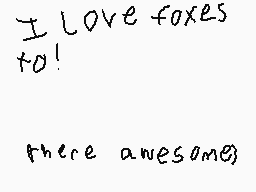 I love foxes
to!
there awesome;)